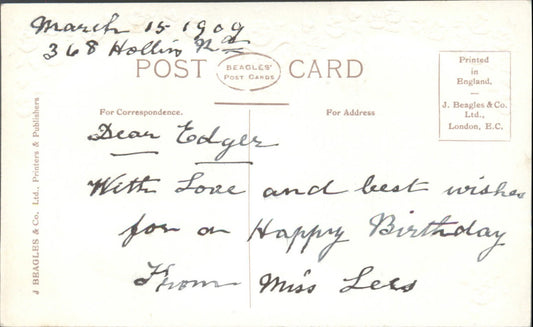 March 15 1909
368 Hollin Rd
POST CARD
BEAGLES'
POST CARDS
Printed
in
England.
J. Beagles & Co.
Ltd.,
London, E.C.
For Correspondence.
For Address
J BEAGLES & Co., Ltd., Printers & Publishers
Dear Edyer
With Love and best wishes
for a Happy Birthday
From Miss Lees